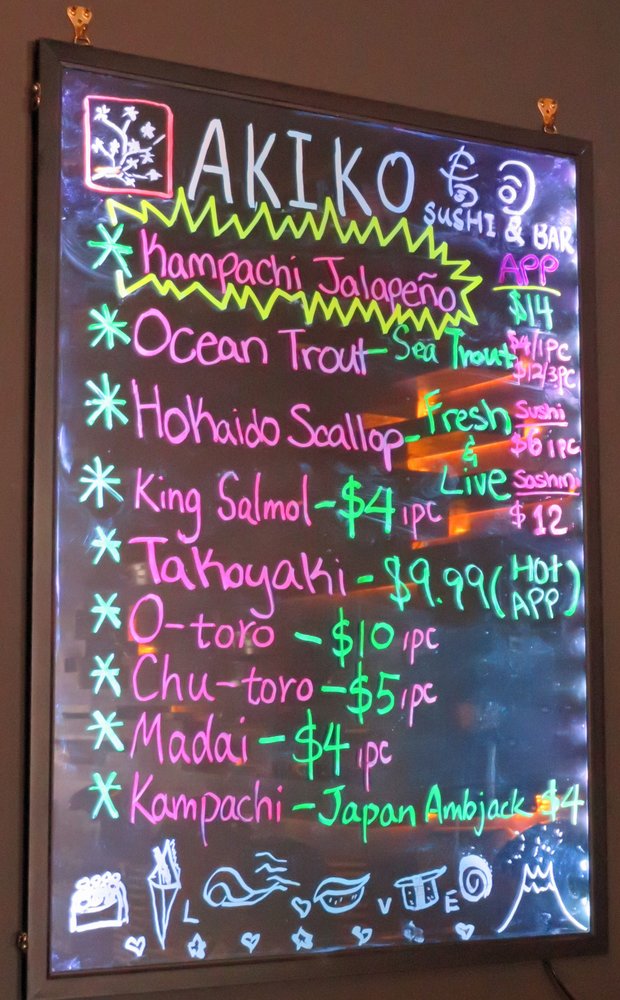 AKIKO
SUSHI & BAR
* Kampachi Jalapeño APP $14
* Ocean Trout - Sea Trout $4/1pc $12/3pc
* Hokaido Scallop - Fresh & Live Sushi $6 1pc Sashimi $12
* King Salmol - $4 1pc
* Takoyaki - $9.99 (Hot APP)
* O-toro - $10 1pc
* Chu-toro - $5 1pc
* Madai - $4 1pc
* Kampachi - Japan Ambjack $4
L V E